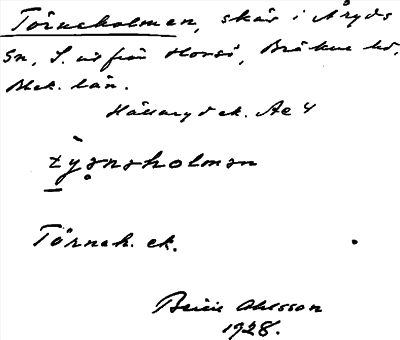 Törneholmen, skär i Åryds
sn, S. ut från Horsö, Bräkne hd,
Blek. län.
Hällaryd ek. Ae 4
tyənəholmən
Törneh. ek.
Ohlsson
1928.